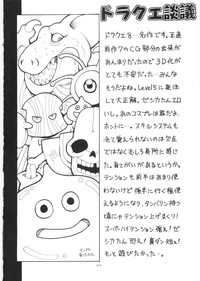 ドラクエ談議
ドラクエ8…名作です。正直
前作7のCG部分の出来が
あんまりだったので3D化が
とても不安だった…みんな
そうだよね。Level5に発注し
て大正解。ゼシカたんエロ
いし。あのコスプレは罪だよ
ホントにー。スキルシステムも
全て覚えられないのは欠点
ではなくむしろ長所に感じ
た。育てがいがあるというか。
テンションも手前はあまり使
わないけど後手に行く程使
えるようになり、タンバリン持つ
頃にゃテンション上げまくり！
スーパーハイテンション強えー！ゼ
シカたん怒！！竜ダン怒ぇ！
もっと遊びたかった…。